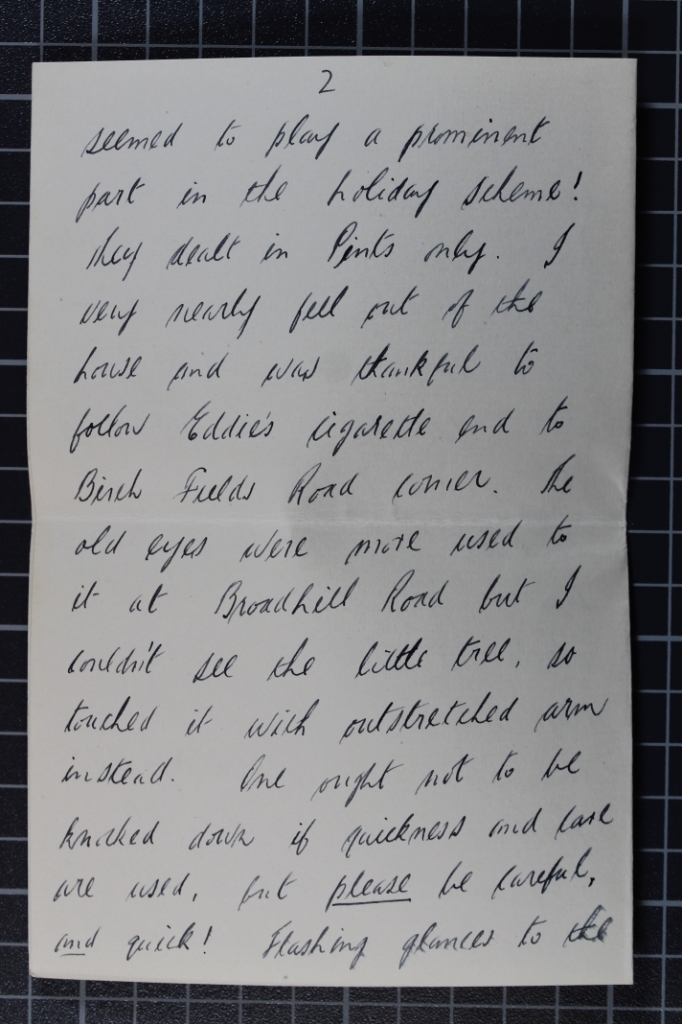 2
seemed to play a prominent
part in the holiday scheme!
They dealt in Pints only. I
very nearly fell out of the
house and was thankful to
follow Eddie's cigarette end to
Birch Fields Road corner. The
old eyes were more used to
it at Broadhill Road but I
couldn't see the little tree, so
touched it with outstretched arm
instead. One ought not to be
knocked down if quickness and care
are used, but please be careful,
and quick! Flashing glances to the